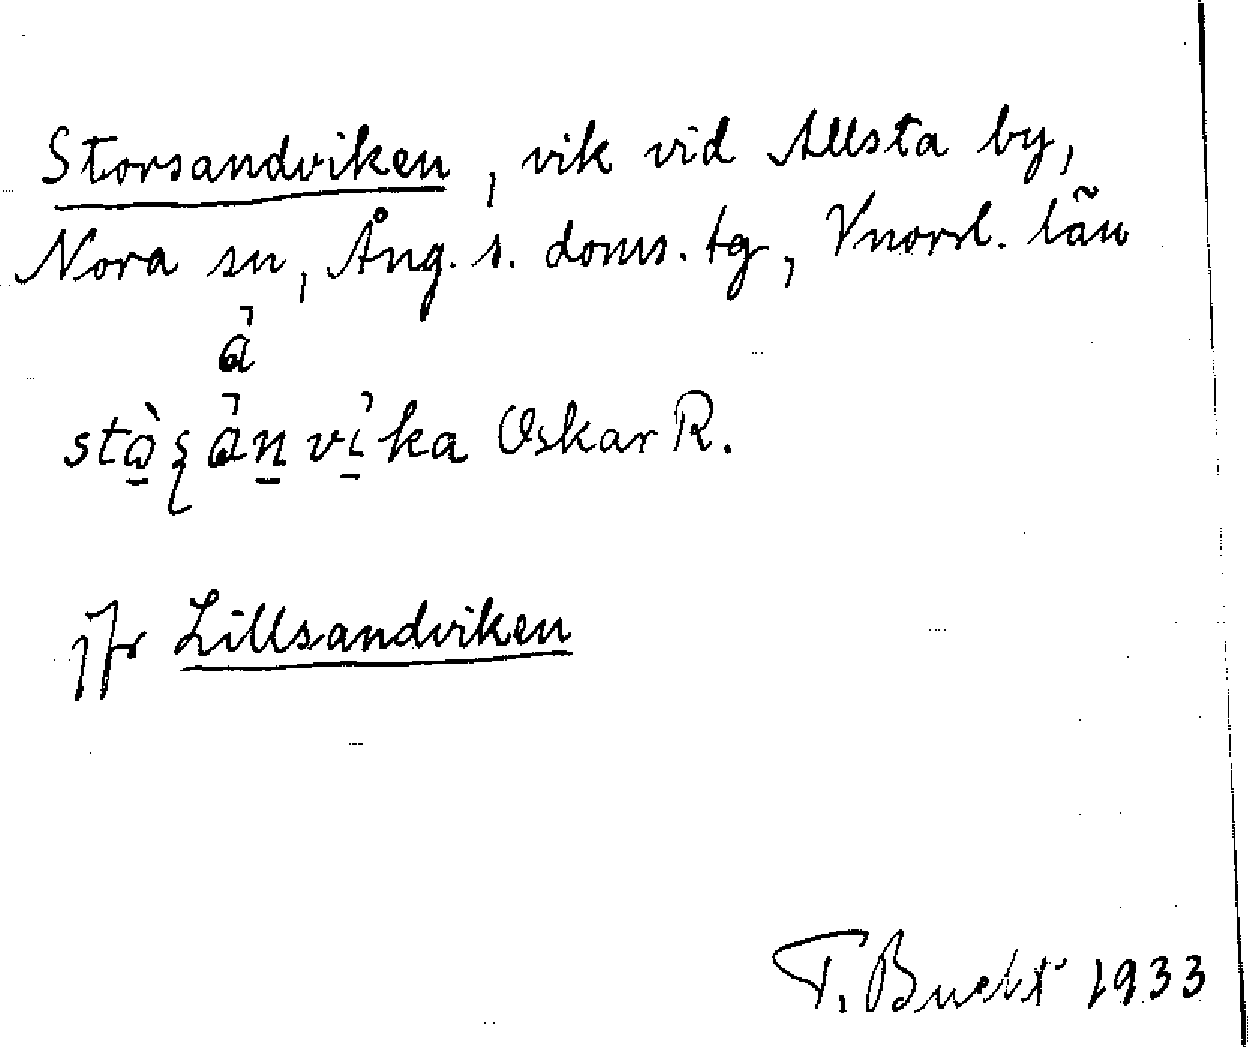 Storsandviken, vik vid Allsta by,
Nora sn, Ång. s. doms. tg, Vnorrl. län
a
stòʂanvika Oskar R.
jfr Lillsandviken
T. Bucht 1933